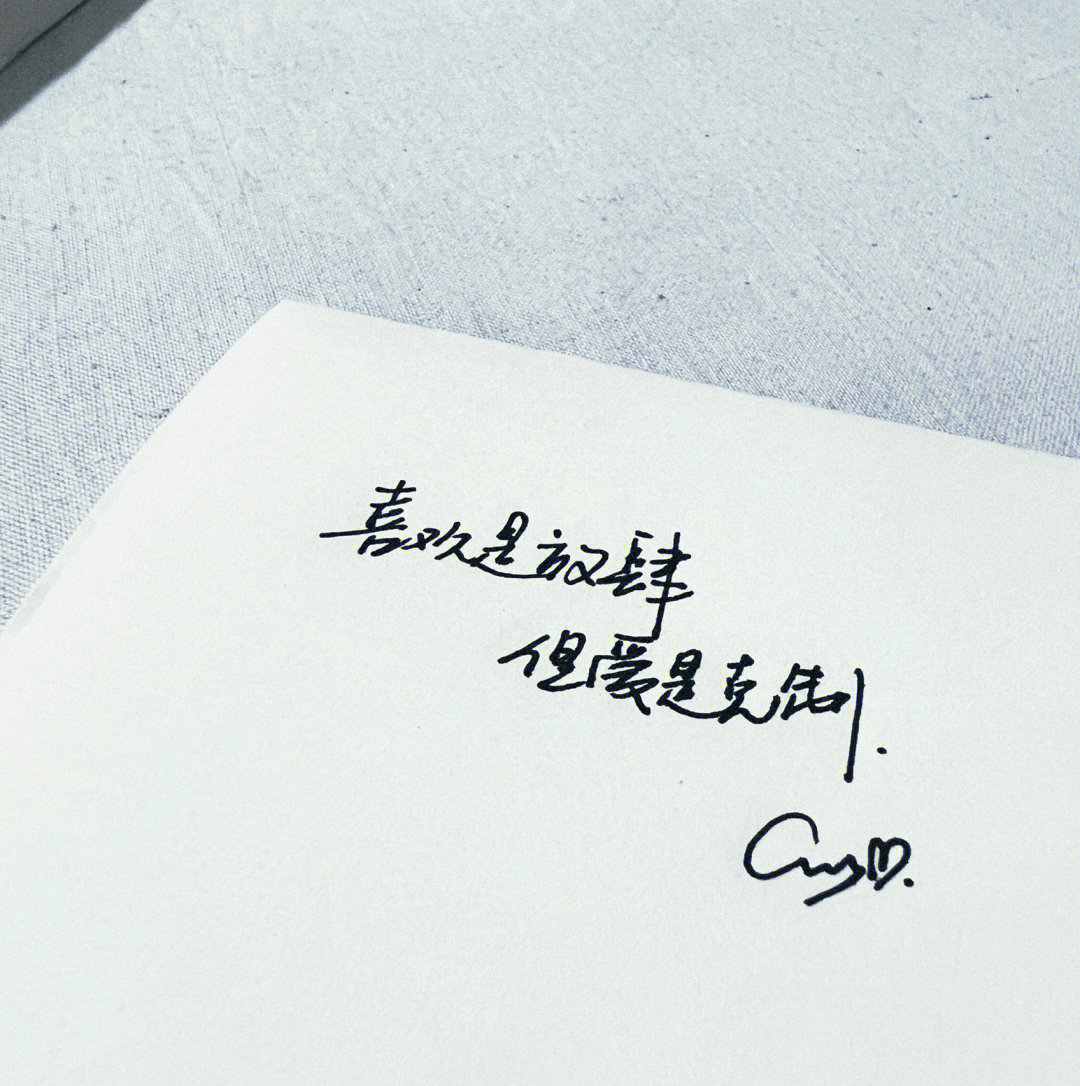 喜欢是放肆
但爱是克制.